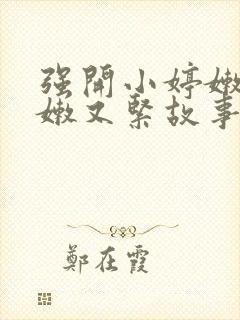 强開小婷嫩
嫩又緊故事
鄭在霞